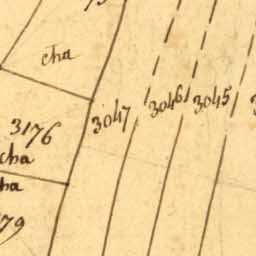 cha
3047 3046 3045
3176
cha
ha
79